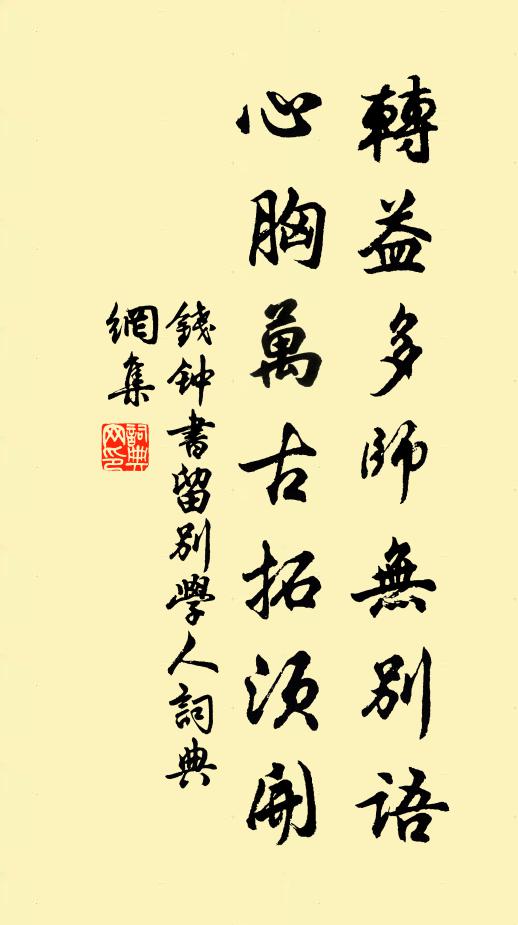 轉益多師無別語
心胸萬古拓須開
錢钟書留別學人詞典
網集
詞典
网印